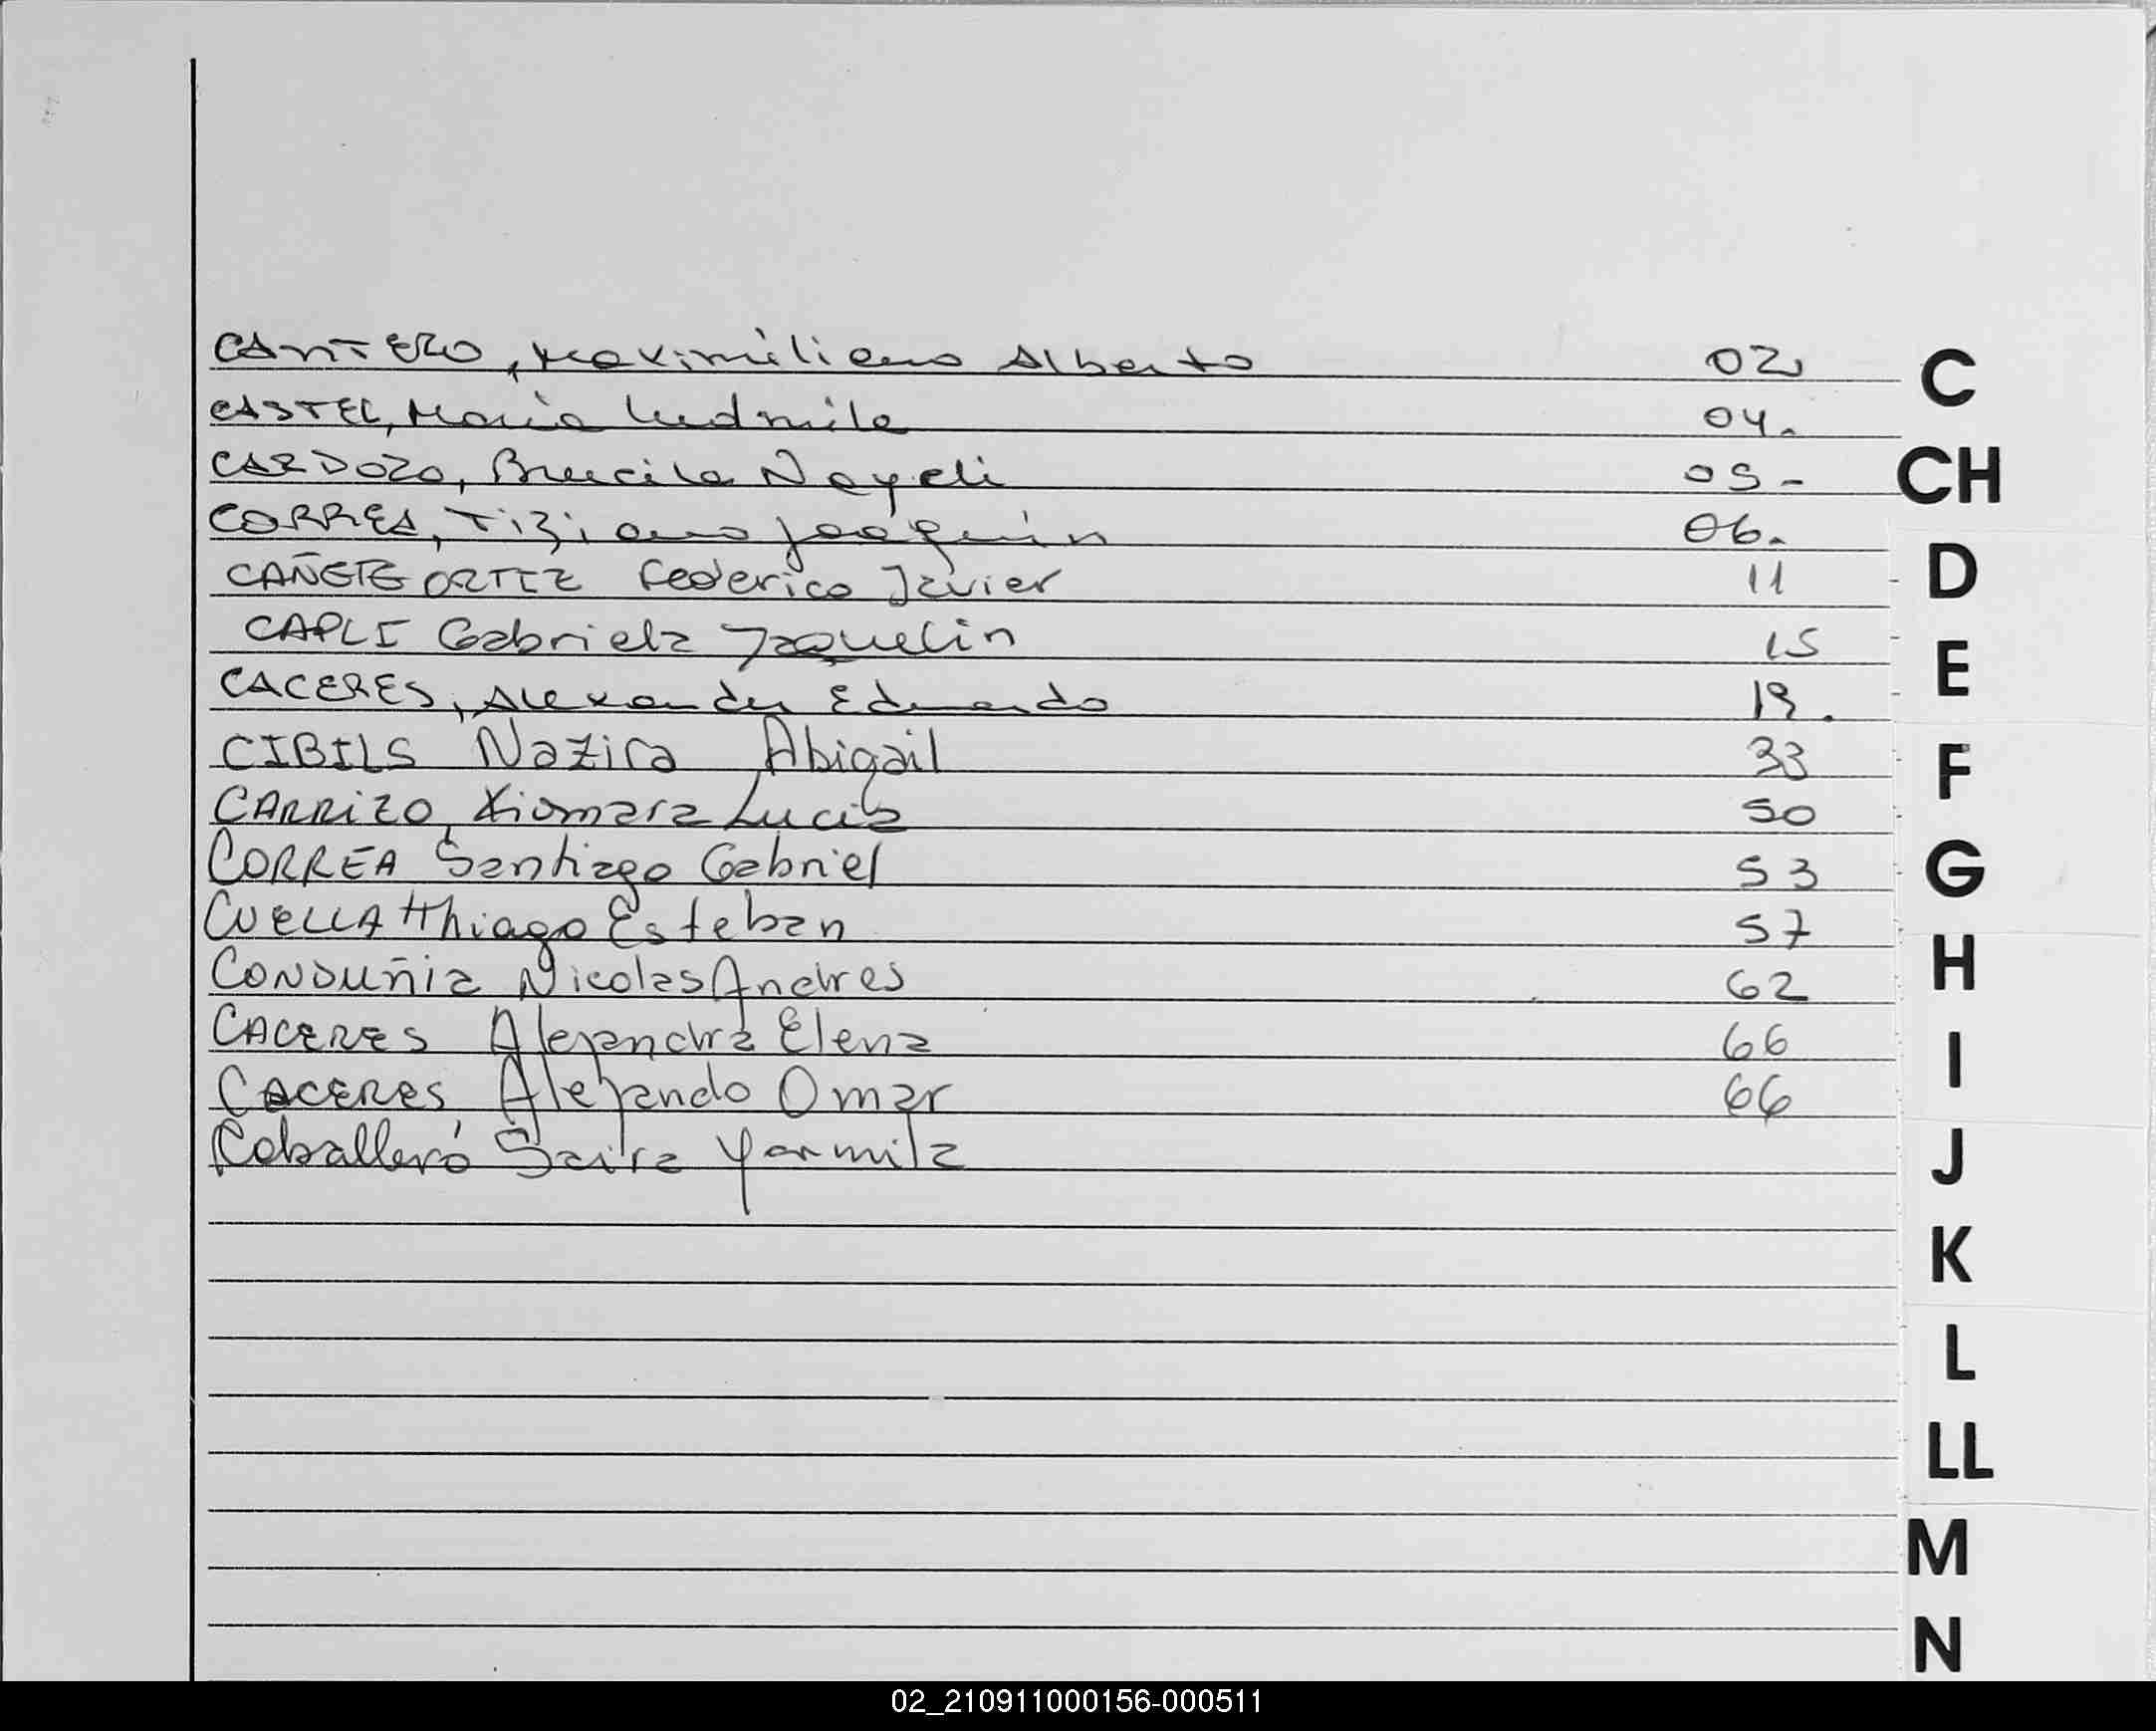 CANTERO, Maximiliano Alberto 02
CASTEL, Maria Ludmila 04.
CARDOZO, Brucila Nayeli 05-
CORREA, Tiziano Joaquin 06.
CAÑETE ORTIZ Federico Javier 11
CAPLI Gabriela Jaquelin 15
CACERES, Alexander Eduardo 19.
CIBILS Nazira Abigail 33
CARRIZO, Xiomara Lucia 50
CORREA Santiago Gabriel 53
CUELLA Thiago Esteban 57
CONDUÑIA Nicolas Andres 62
CACERES Alejandra Elena 66
CACERES, Alejando Omar 66
Caballero Saira Yarmila
C
CH
D
E
F
G
H
I
J
K
L
LL
M
N
02_210911000156-000511